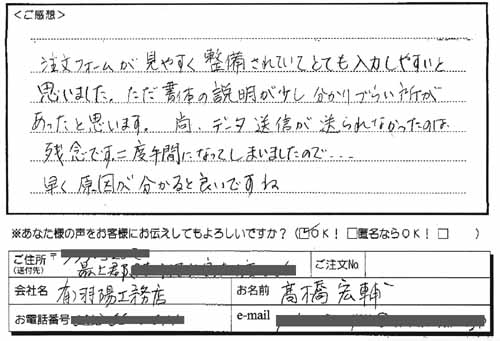 <ご感想>
注文フォームが見やすく整備されていてとても入力しやすいと
思いました。ただ書体の説明が少し分かりづらい所が
あったと思います。尚、データ送信が送られなかったのは
残念です。二度手間になってしまいましたので・・・
早く原因が分かると良いですね
※あなた様の声をお客様にお伝えしてもよろしいですか？(☑OK！ □匿名ならOK！ □ )
ご住所 〒
(送付先) 最上郡 ご注文No
会社名 (有)羽陽工務店 お名前 髙橋宏輔
お電話番号 e-mail